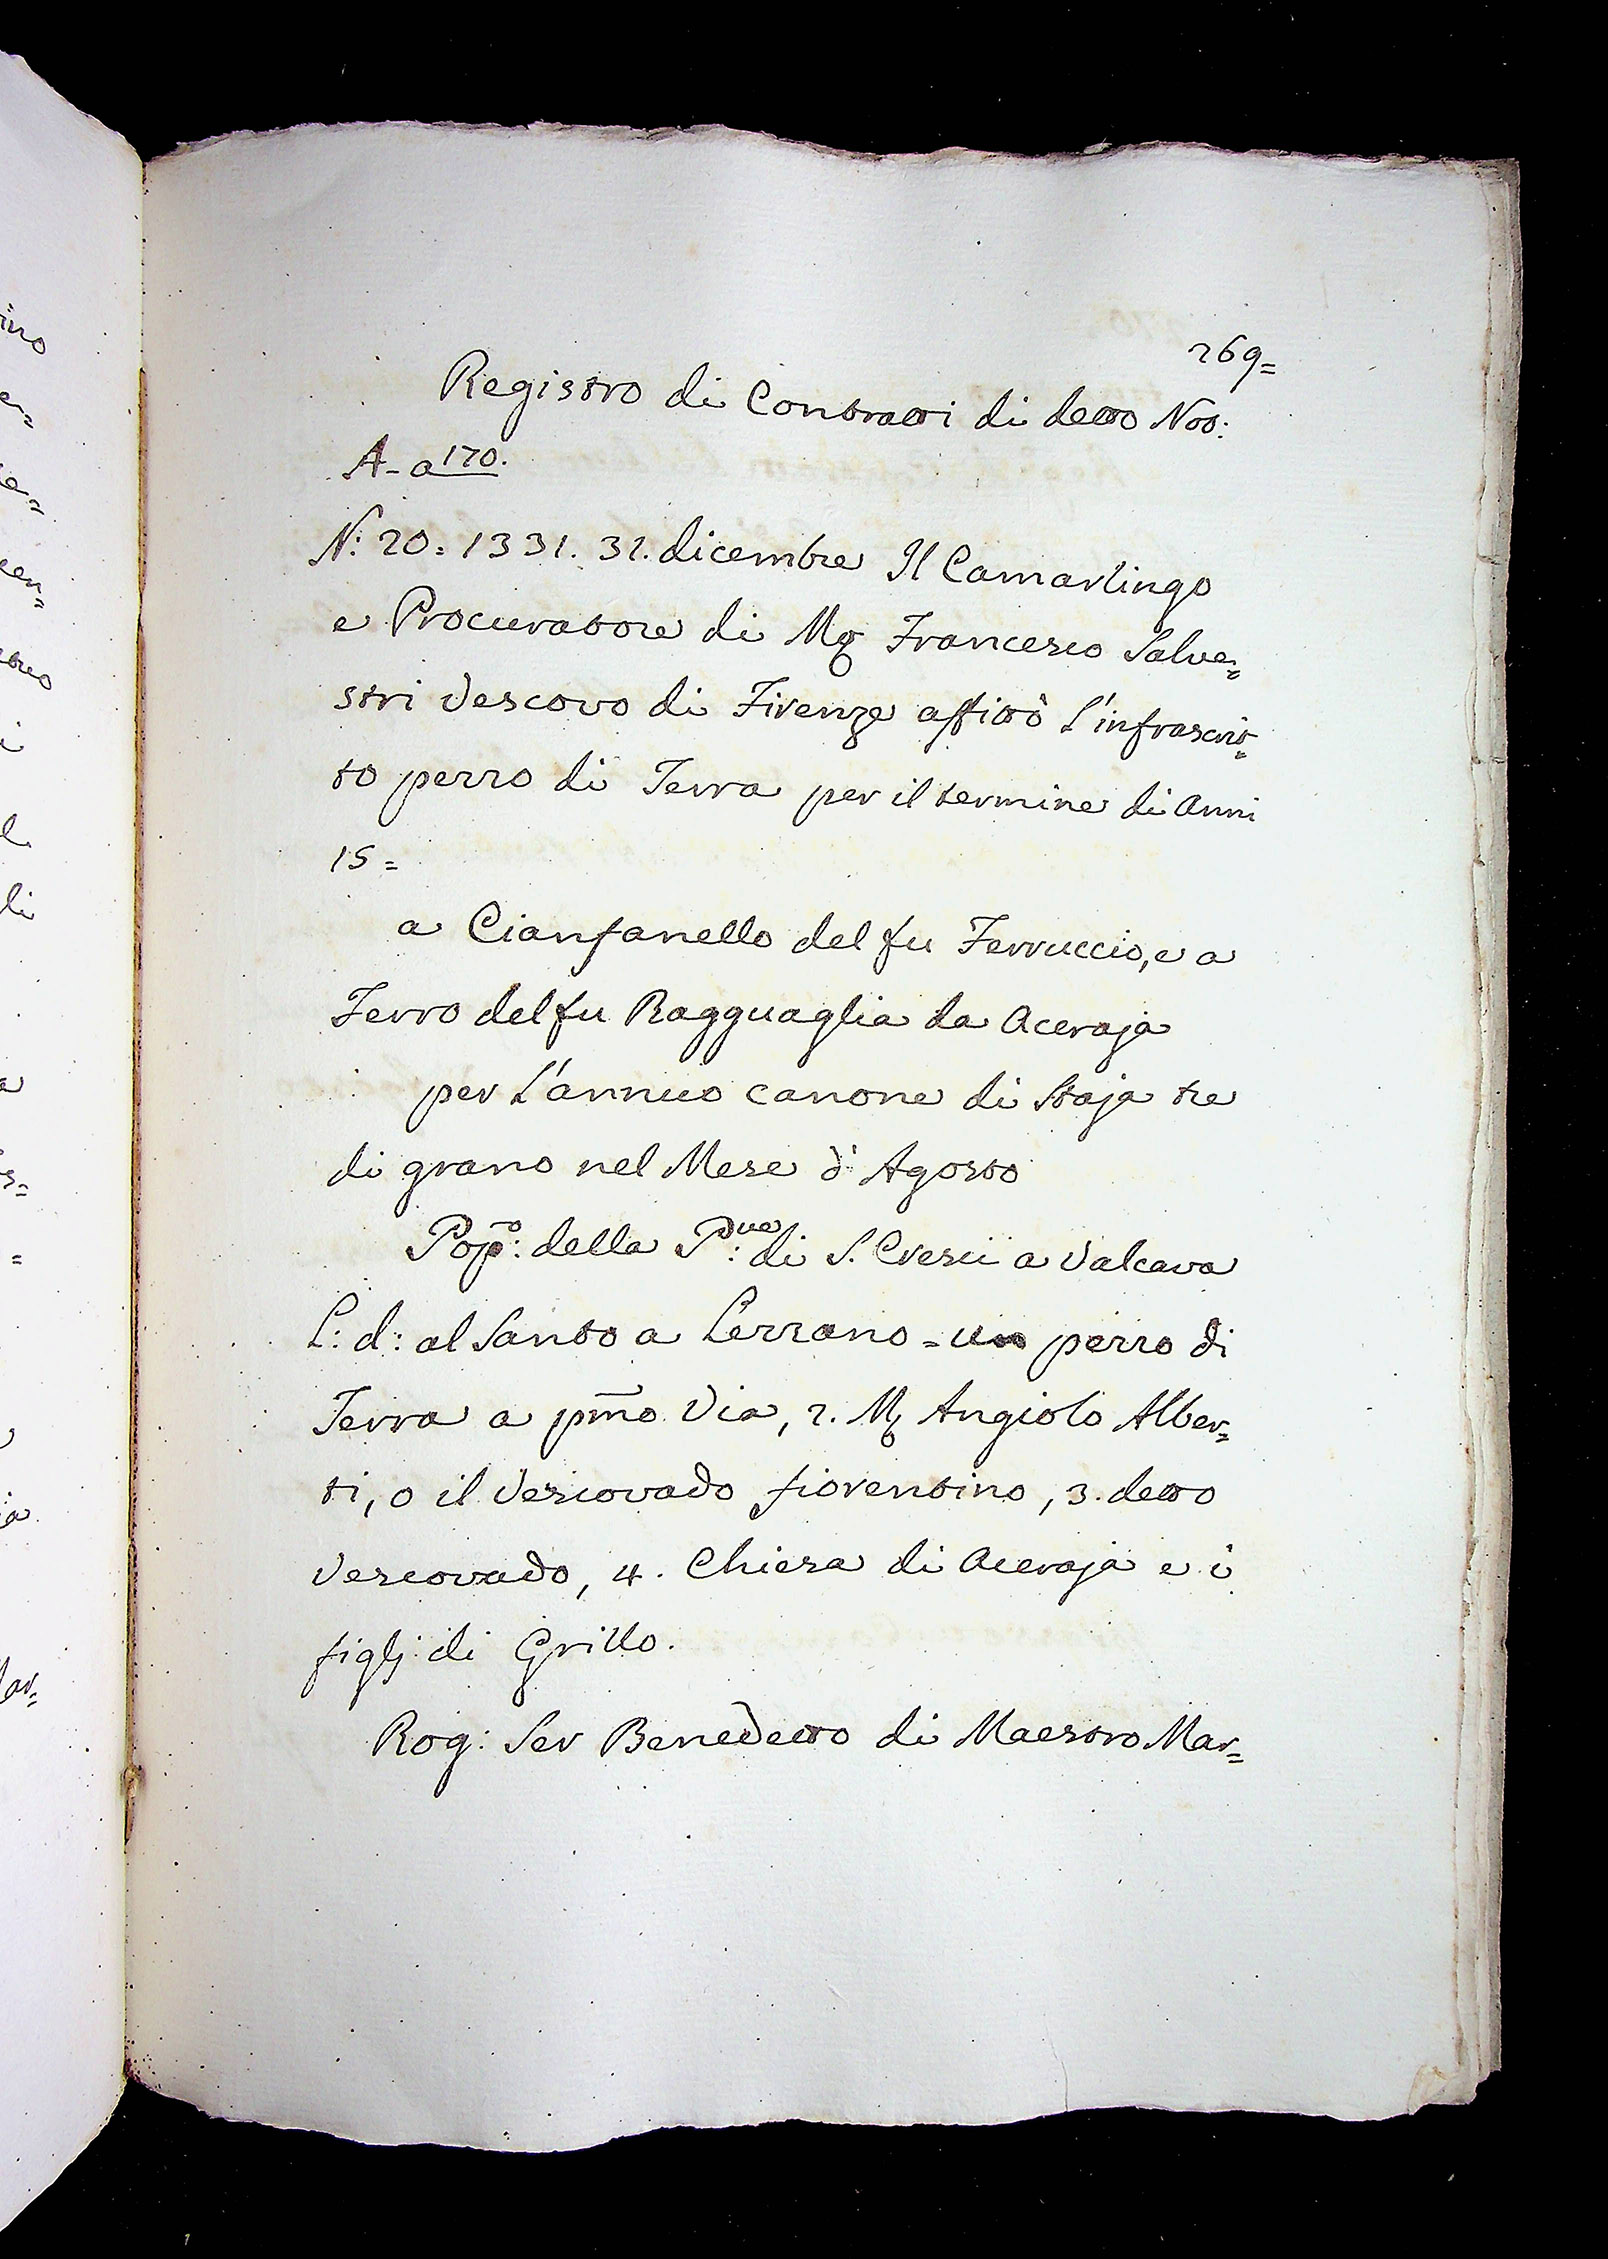 269=
Registro di Contratti di detto Not:
A- a 170.
N: 20: 1331. 31. dicembre Il Camarlingo
e Procuratore di Mg Francesco Salve=
stri Vescovo di Firenze affittò l'infrascrit=
to pezzo di Terra per il termine di Anni
15=
a Cianfanello del fu Ferruccio, e a
Ferro del fu Ragguaglia da Aceraja
per l'annuo canone di Staja tre
di grano nel Mese d'Agosto
Pop̃o: della P:ve di S. Cresci a Valcava
L: d: al Santo a Lezzano = un pezzo di
Terra a pm̃o Via, 2. Mg Angiolo Alber=
ti, o il Vescovado fiorentino, 3. detto
Vescovado, 4. Chiesa di Aceraja e i
figlj di Grillo.
Rog: Ser Benedetto di Maestro Mar=
ino
er=
li